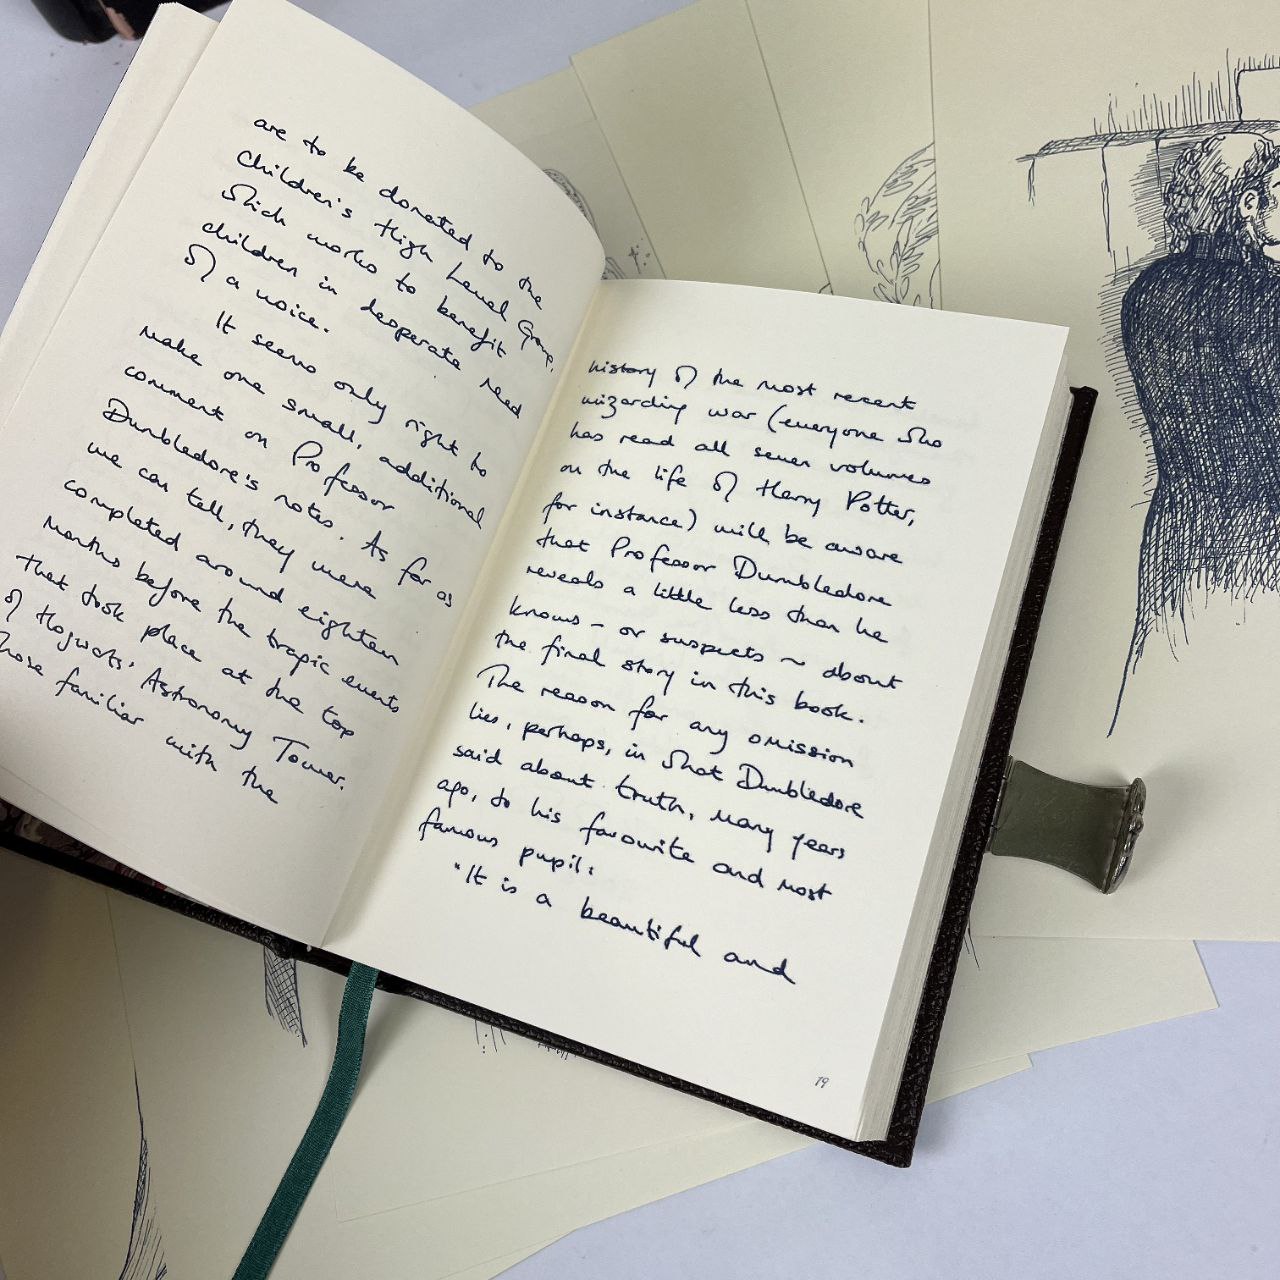 are to be donated to the
Children's High Level Group,
which works to benefit
children in desperate need
of a voice.
It seems only right to
make one small, additional
comment on Professor
Dumbledore's notes. As far as
we can tell, they were
completed around eighteen
months before the tragic events
that took place at the top
of Hogwarts' Astronomy Tower.
Those familiar with the
history of the most recent
wizarding war (everyone who
has read all seven volumes
on the life of Harry Potter,
for instance) will be aware
that Professor Dumbledore
reveals a little less than he
knows – or suspects – about
the final story in this book.
The reason for any omission
lies, perhaps, in what Dumbledore
said about truth, many years
ago, to his favourite and most
famous pupil:
"It is a beautiful and
19